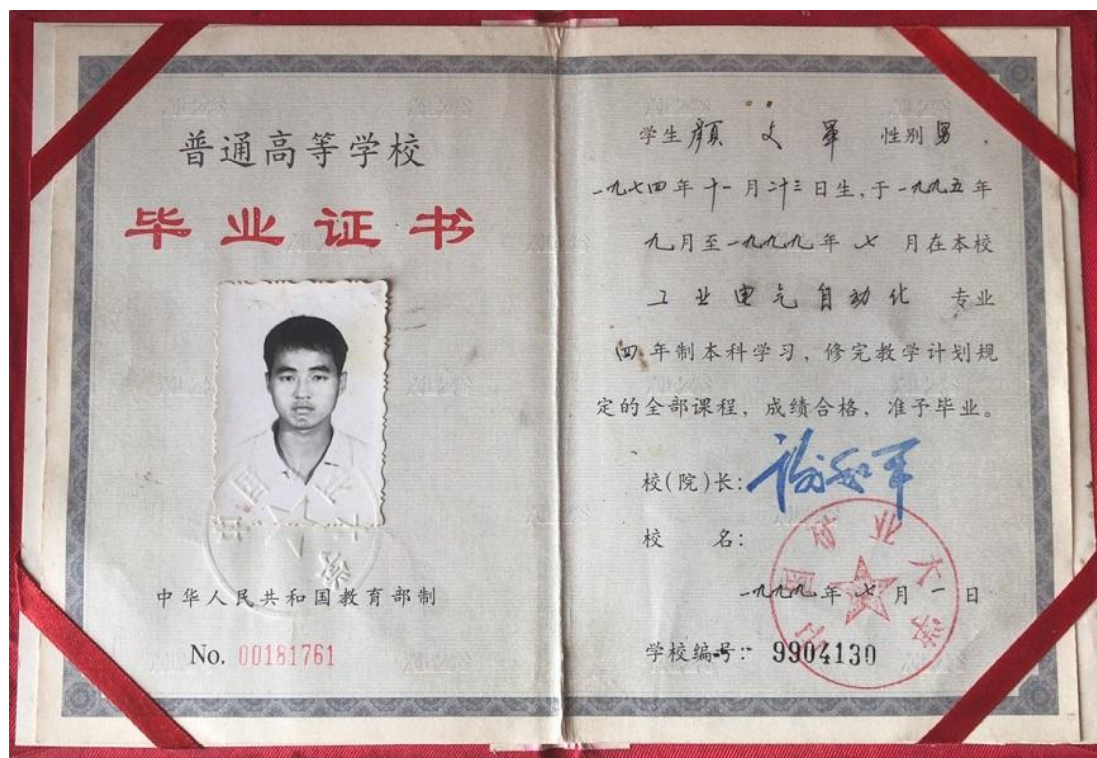 普通高等学校
毕业证书
中华人民共和国教育部制
No. 00181761
学生 颜文军 性别 男
一九七四年十一月廿三日生,于一九九五年
九月至一九九九年七月在本校
工业电气自动化 专业
四年制本科学习,修完教学计划规
定的全部课程,成绩合格,准予毕业。
校(院)长:谢和平
校 名:
中国矿业大学
一九九九年七月一日
学校编号: 9904130